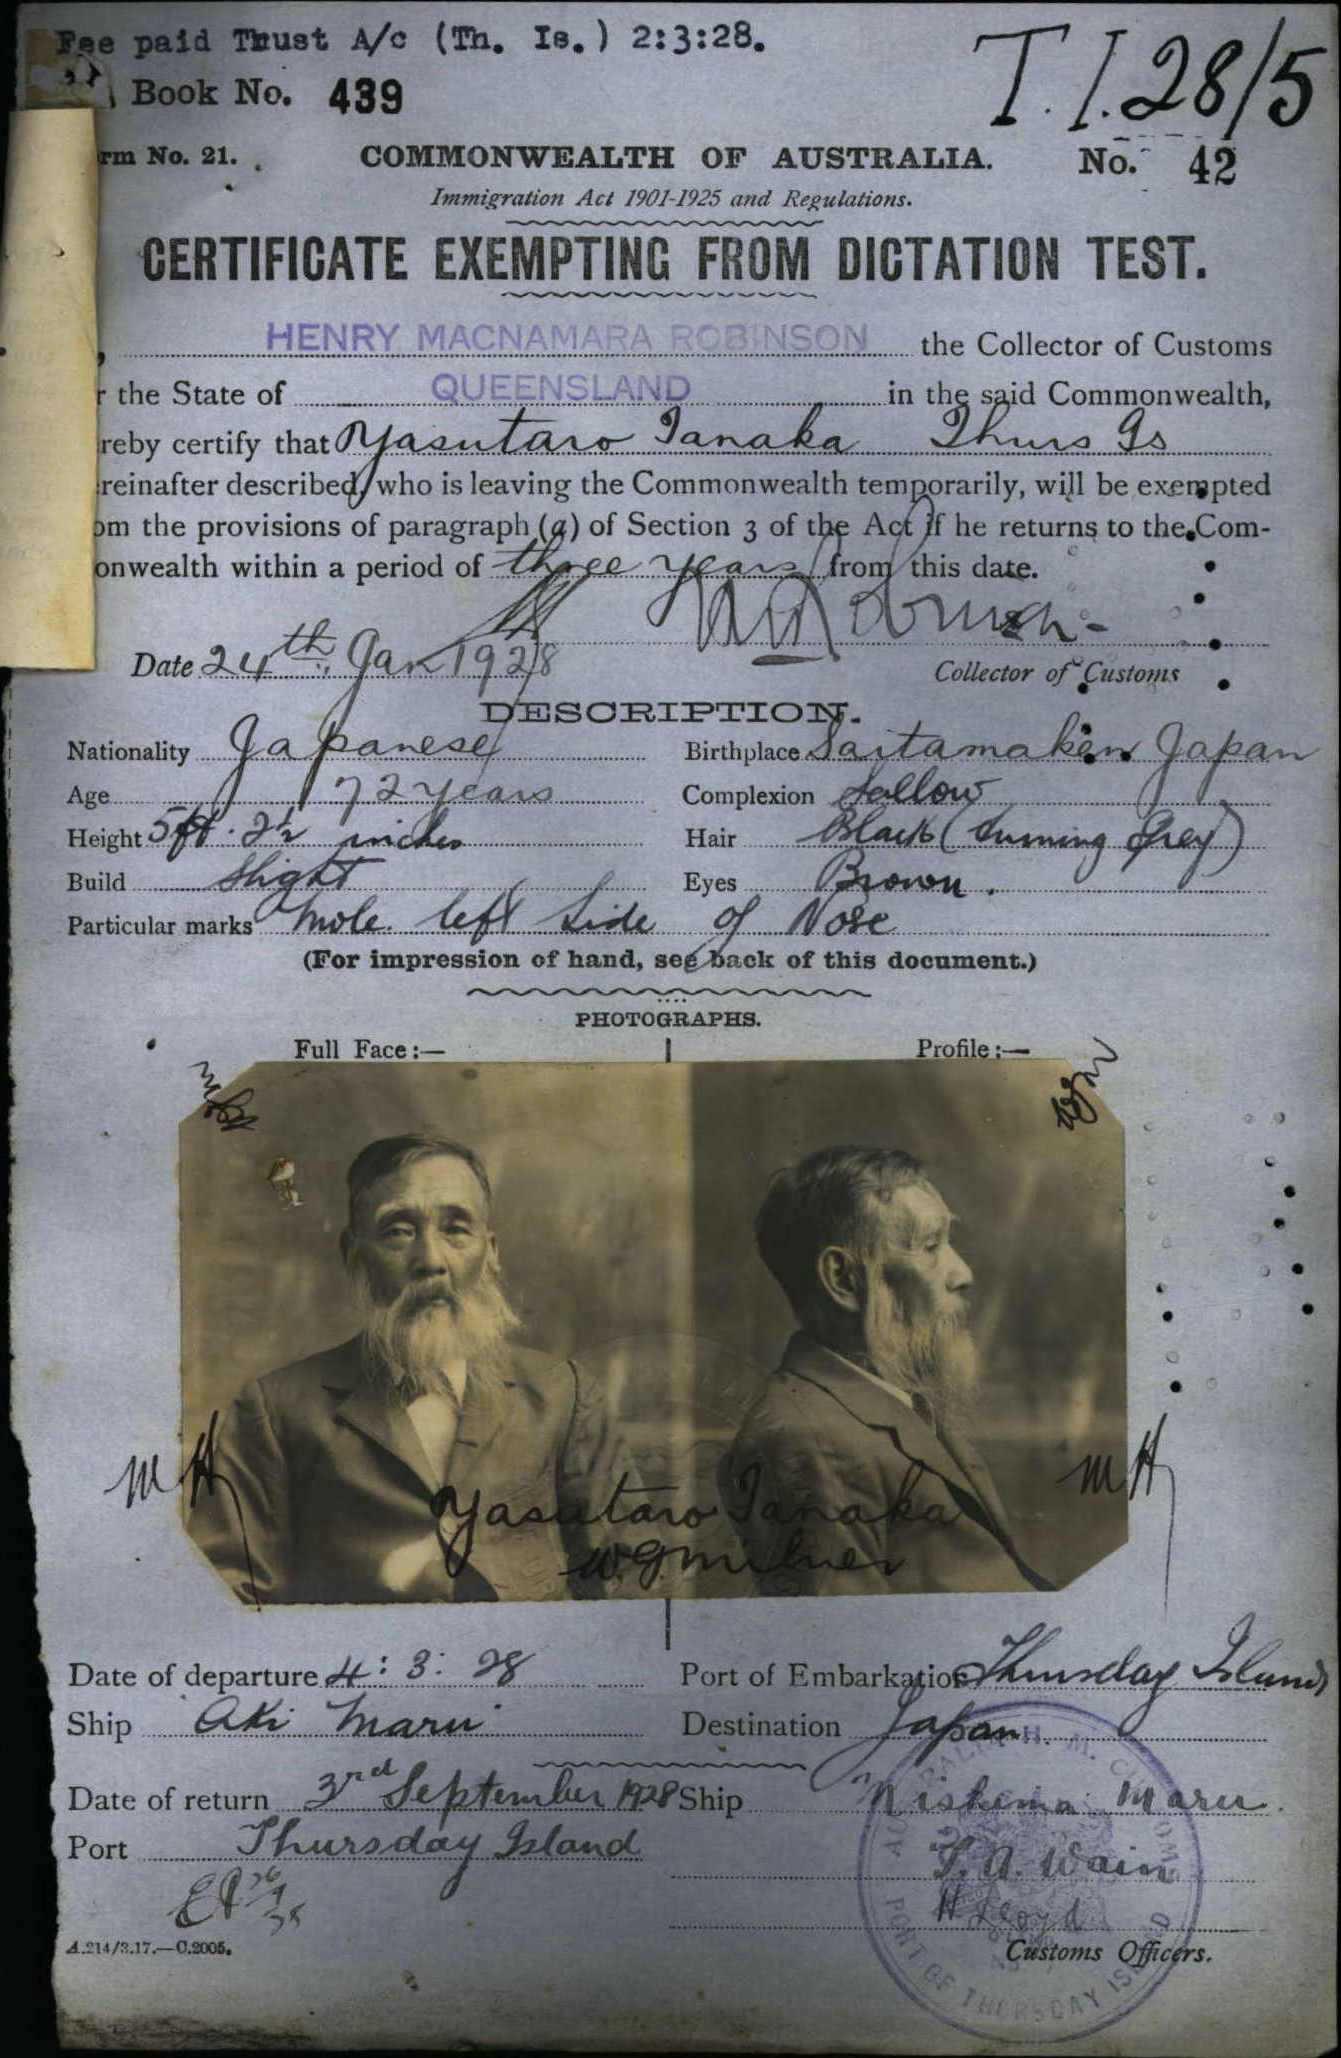 Fee paid Trust A/c (Th. Is.) 2:3:28.
Book No. 439
T.I.28/5
rm No. 21.
COMMONWEALTH OF AUSTRALIA.
No. 42
Immigration Act 1901-1925 and Regulations.
CERTIFICATE EXEMPTING FROM DICTATION TEST.
, HENRY MACNAMARA ROBINSON the Collector of Customs
r the State of QUEENSLAND in the said Commonwealth,
reby certify that Yasutaro Tanaka Thurs Is
reinafter described, who is leaving the Commonwealth temporarily, will be exempted
om the provisions of paragraph (a) of Section 3 of the Act if he returns to the Com-
onwealth within a period of three years from this date.
Date 24th Jan 1928
Collector of Customs
DESCRIPTION.
Nationality Japanese Birthplace Saitamaken Japan
Age 72 years Complexion Sallow
Height 5ft. 2½ inches Hair Black (turning Grey)
Build Slight Eyes Brown.
Particular marks Mole left Side of Nose
(For impression of hand, see back of this document.)
PHOTOGRAPHS.
Full Face:— Profile:—
MH MH
Yasutaro Tanaka
W.G. Milner
Date of departure 4:3:28 Port of Embarkation Thursday Island
Ship Aki Maru Destination Japan.
Date of return 3rd September 1928 Ship Nishima Maru.
Port Thursday Island
T. A. Wain
H Lloyd
A.214/3.17.—C.2005.
Customs Officers.
AUSTRALIA H. M. CUSTOMS
PORT OF THURSDAY ISLAND